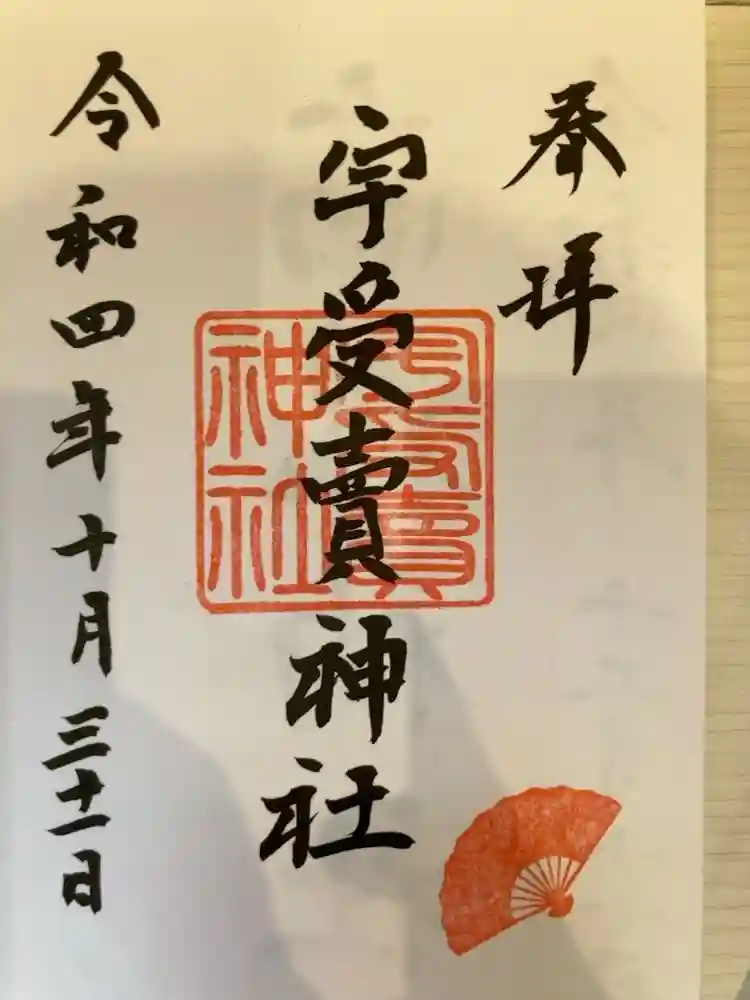 奉拝
宇受賣神社
令和四年十月三十一日
宇受賣
神社